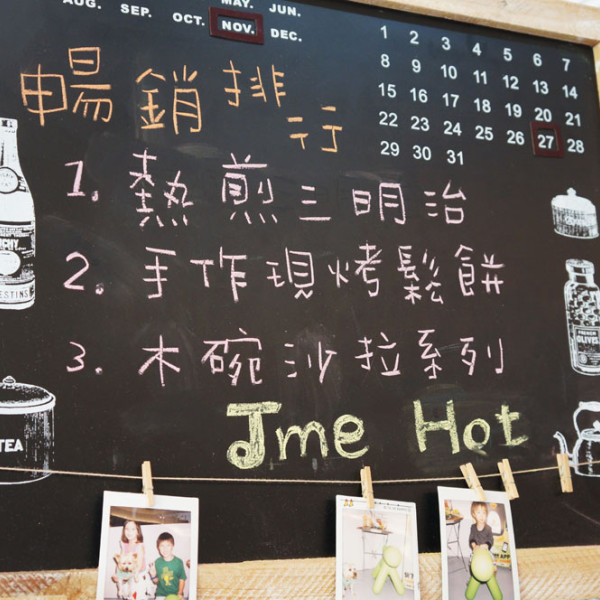 MAY. JUN.
AUG. SEP. OCT. NOV. DEC.
1 2 3 4 5 6 7
8 9 10 11 12 13 14
15 16 17 18 19 20 21
22 23 24 25 26 27 28
29 30 31
暢銷排行
1. 熱煎三明治
2. 手作現烤鬆餅
3. 木碗沙拉系列
Jme Hot
TEA
FRENCH
OLIVES